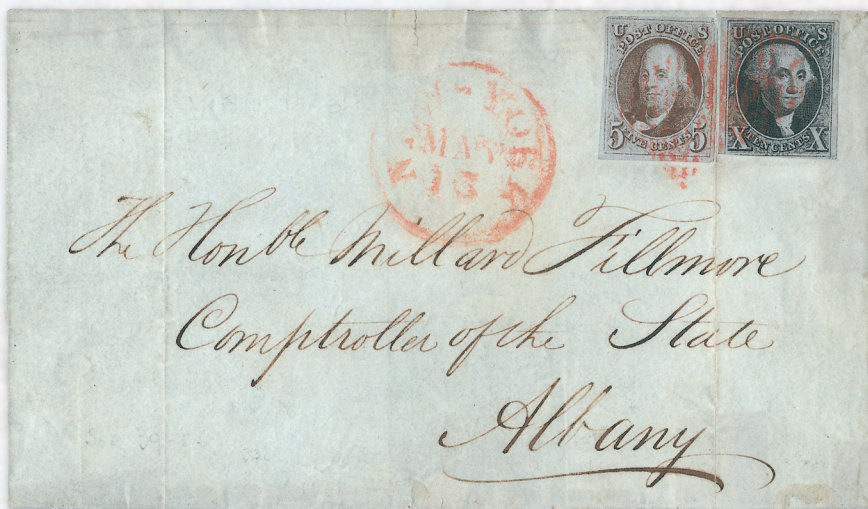 U S
POST OFFICE
5 FIVE CENTS 5
U S
POST OFFICE
X TEN CENTS X
NEW YORK
MAY
13
The Honble Millard Fillmore
Comptroller of the State
Albany